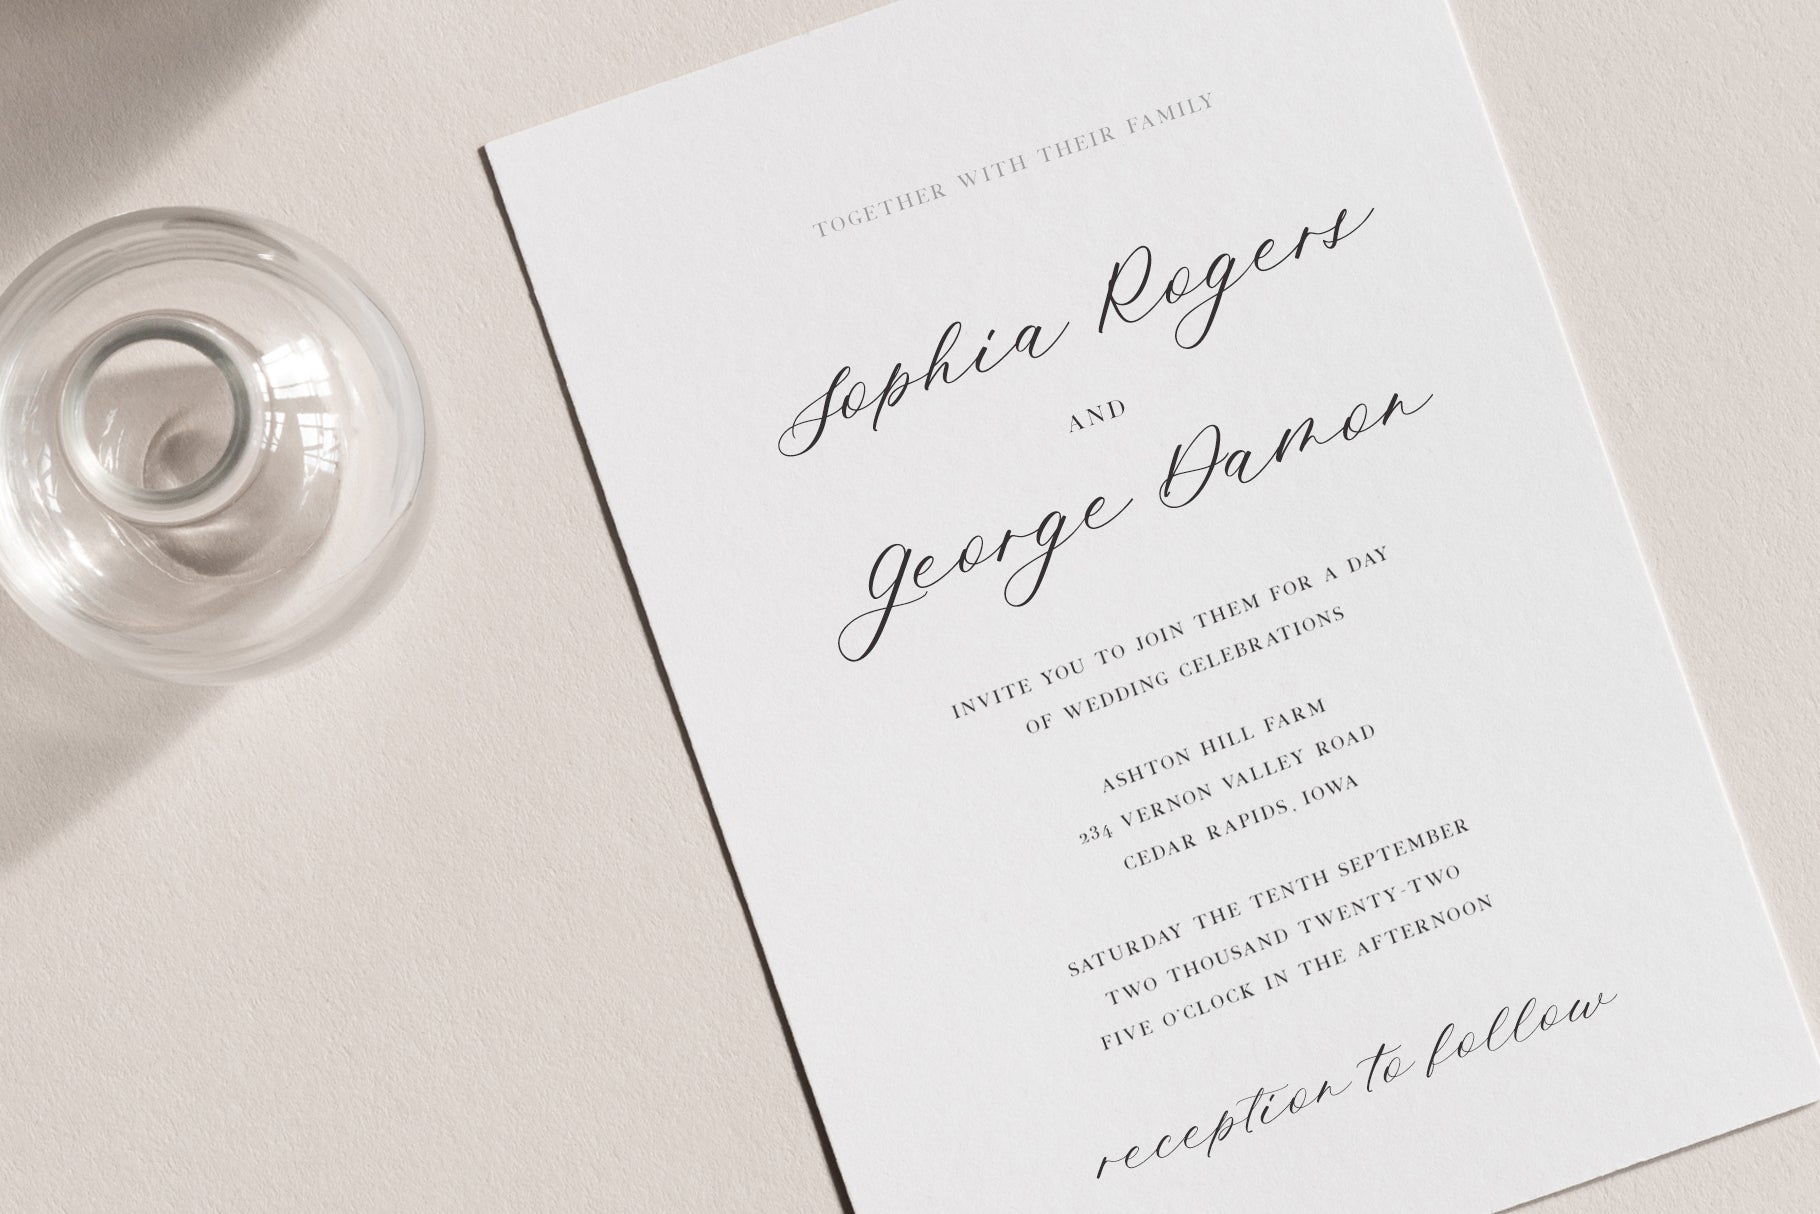 TOGETHER WITH THEIR FAMILY
Sophia Rogers
AND
George Damon
INVITE YOU TO JOIN THEM FOR A DAY
OF WEDDING CELEBRATIONS
ASHTON HILL FARM
234 VERNON VALLEY ROAD
CEDAR RAPIDS, IOWA
SATURDAY THE TENTH SEPTEMBER
TWO THOUSAND TWENTY-TWO
FIVE O'CLOCK IN THE AFTERNOON
reception to follow